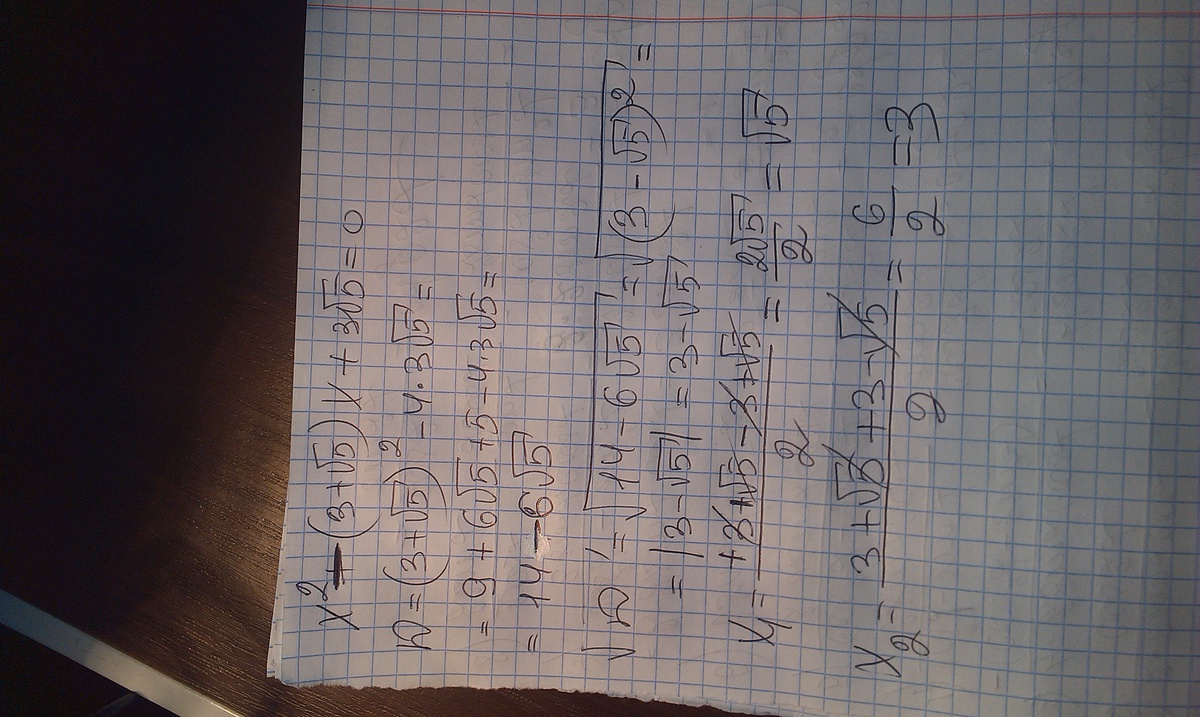 x² - (3+√5)x + 3√5 = 0
D = (3+√5)² - 4·3√5 =
= 9 + 6√5 + 5 - 4·3√5 =
= 14 - 6√5
√D = √(14 - 6√5) = √(3-√5)² =
= |3-√5| = 3-√5
x₁ = (+3+√5-3+√5)/2 = 2√5/2 = √5
x₂ = (3+√5+3-√5)/2 = 6/2 = 3